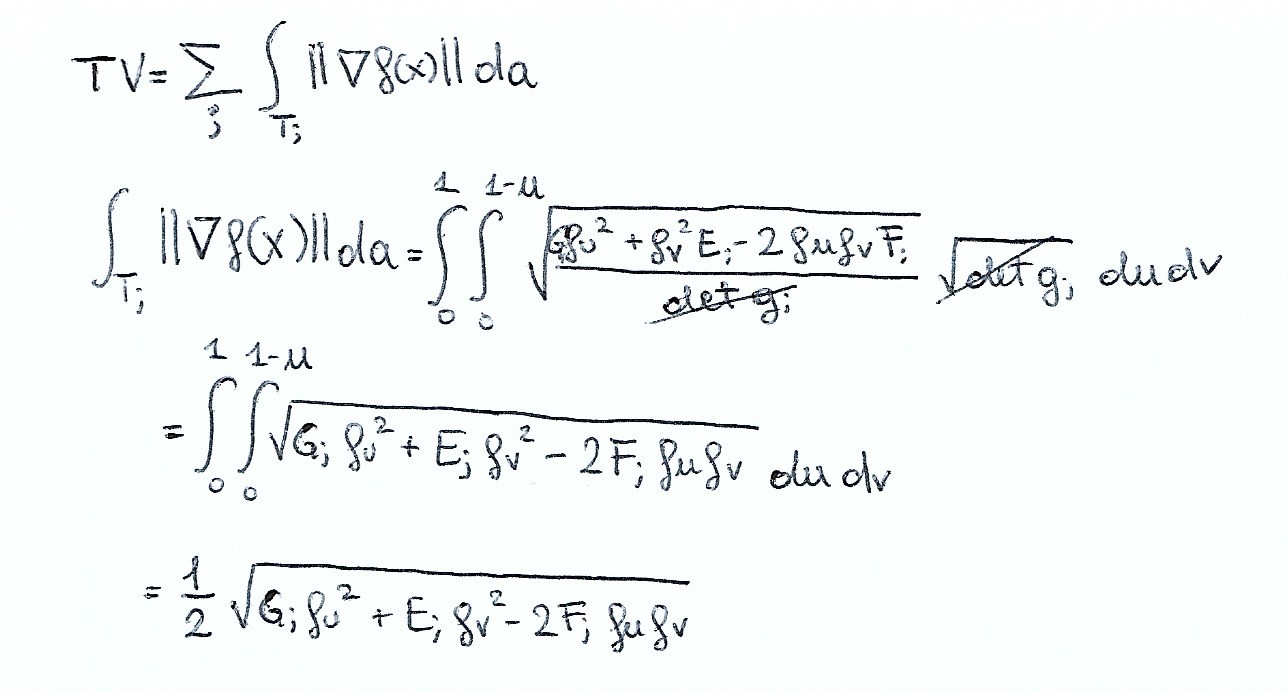 TV = ∑_j ∫_{T_j} ||∇f(x)|| da
∫_{T_j} ||∇f(x)|| da = ∫_0^1 ∫_0^{1-u} √((G f_u² + f_v² E_j - 2 f_u f_v F_j) / det g_j) √(det g_j) du dv
= ∫_0^1 ∫_0^{1-u} √(G_j f_u² + E_j f_v² - 2F_j f_u f_v) du dv
= 1/2 √(G_j f_u² + E_j f_v² - 2F_j f_u f_v)